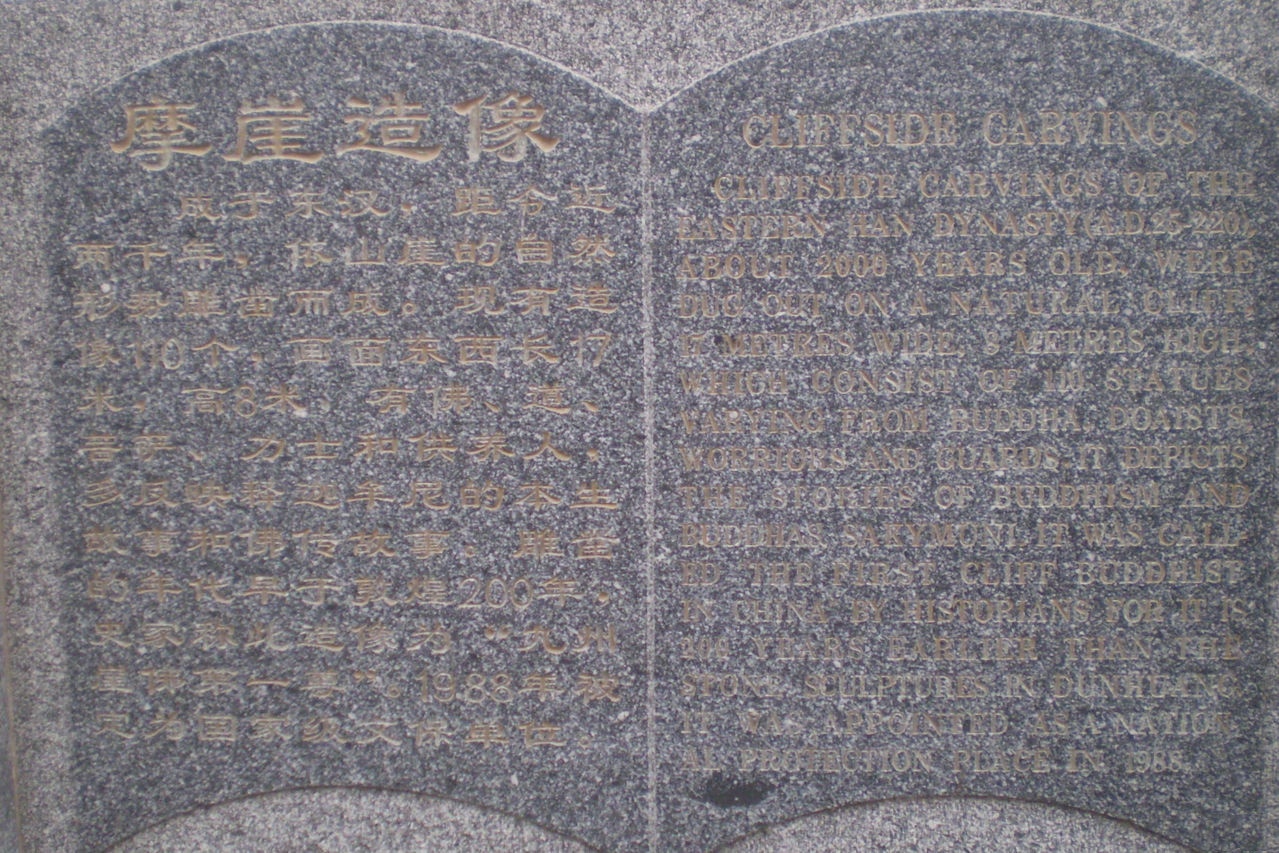 摩崖造像
成于东汉，距今近
两千年，依山崖的自然
形势雕凿而成。现有造
像110个，画面东西长17
米，高8米。有佛、道、
菩萨、力士和供养人，
多反映释迦牟尼的本生
故事和佛传故事，雕凿
的年代早于敦煌200年，
史家称此造像为“九州
崖佛第一尊”。1988年被
定为国家级文保单位。
CLIFFSIDE CARVINGS
CLIFFSIDE CARVINGS OF THE
EASTERN HAN DYNASTY(A.D.25-220),
ABOUT 2000 YEARS OLD, WERE
DUG OUT ON A NATURAL CLIFF,
17 METRES WIDE, 8 METRES HIGH,
WHICH CONSIST OF 110 STATUES
VARYING FROM BUDDHA, DOAISTS,
WORRIORS AND GUARDS.IT DEPICTS
THE STORIES OF BUDDHISM AND
BUDDHAS SAKYMONI.IT WAS CALL-
ED THE FIRST CLIFF BUDDHIST
IN CHINA BY HISTORIANS FOR IT IS
200 YEARS EARLIER THAN THE
STONE SCULPTURES IN DUNHUANG.
IT WAS APPOINTED AS A NATION-
AL PROTECTION PLACE IN 1988.